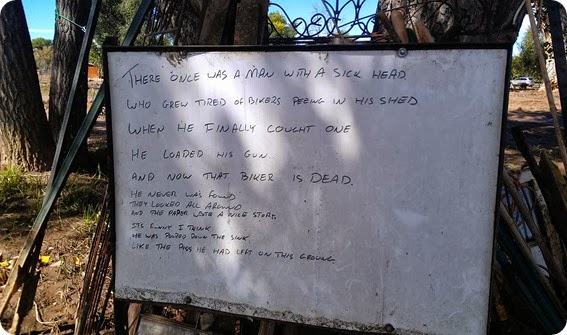 THERE ONCE WAS A MAN WITH A SICK HEAD
WHO GREW TIRED OF BIKERS PEEING IN HIS SHED
WHEN HE FINALLY COUGHT ONE
HE LOADED HIS GUN
AND NOW THAT BIKER IS DEAD.
HE NEVER WAS FOUND
THEY LOOKED ALL AROUND
AND THE PAPER WROTE A NICE STORY.
ITS FUNNY I THINK
HE WAS POURED DOWN THE SINK
LIKE THE PISS HE HAD LEFT ON THIS GROUND